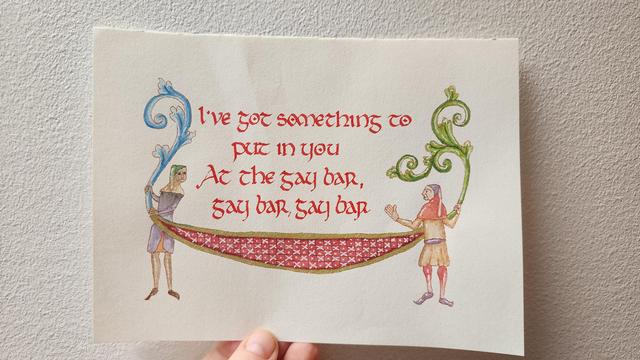 I've got something to
put in you
At the gay bar,
gay bar, gay bar